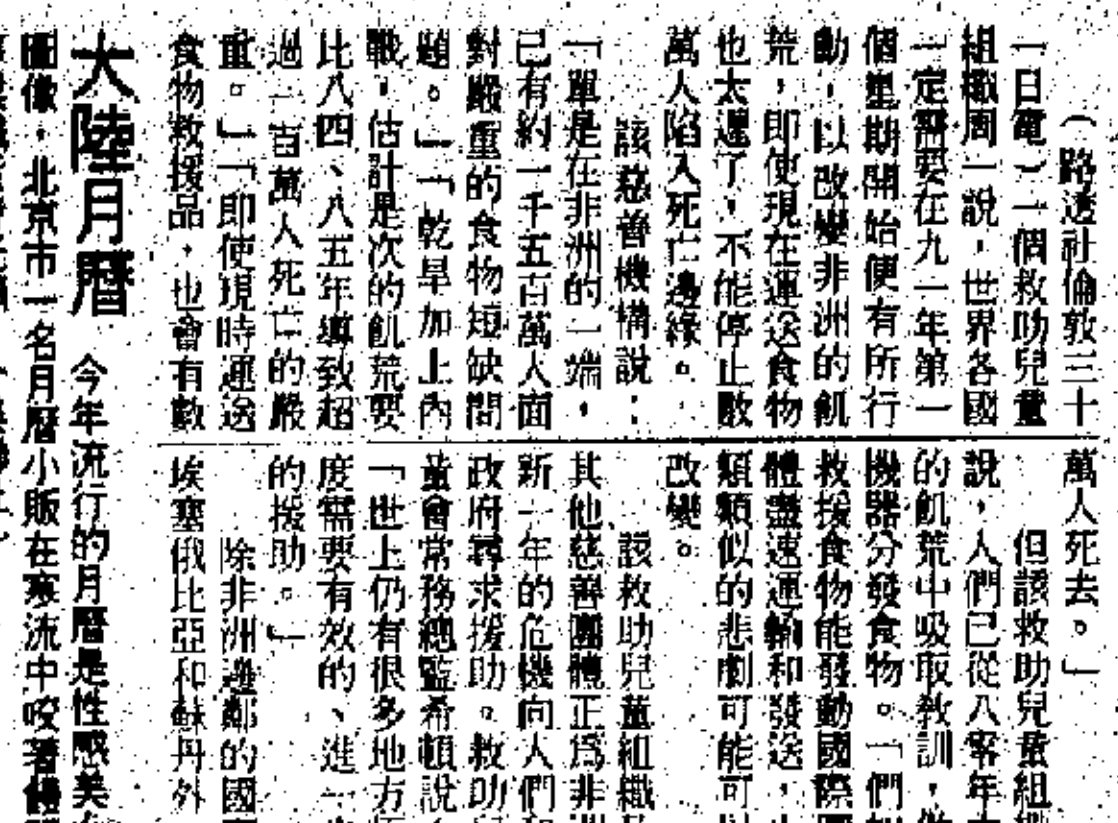 （路透社倫敦三十
一日電）一個救助兒童
組織周一說，世界各國
一定需要在九一年第一
個星期開始便有所行
動，以改變非洲的飢
荒，即使現在運送食物
也太遲了，不能停止數
萬人陷入死亡邊緣。
該慈善機構說：
「單是在非洲的一端，
已有約一千五百萬人面
對嚴重的食物短缺問
題。」「乾旱加上內
戰，估計是次的飢荒要
比八四、八五年導致超
過一百萬人死亡的嚴
重。」「即使現時運送
食物救援品，也會有數
萬人死去。」
但該救助兒童組
說，人們已從八零年
的飢荒中吸取教訓，
機器分發食物。「們
救援食物能發動國際
體盡速運輸和發送，
類類似的悲劇可能可
改變。
該救助兒童組織
其他慈善團體正為非
新一年的危機向人們
政府尋求援助。救助
童會常務總監希頓說
「世上仍有很多地方
度需要有效的、進一
的援助。」
除非洲邊鄰的國
埃塞俄比亞和蘇丹外
大陸月曆 今年流行的月曆是性感美
圖像，北京市一名月曆小販在寒流中咬著